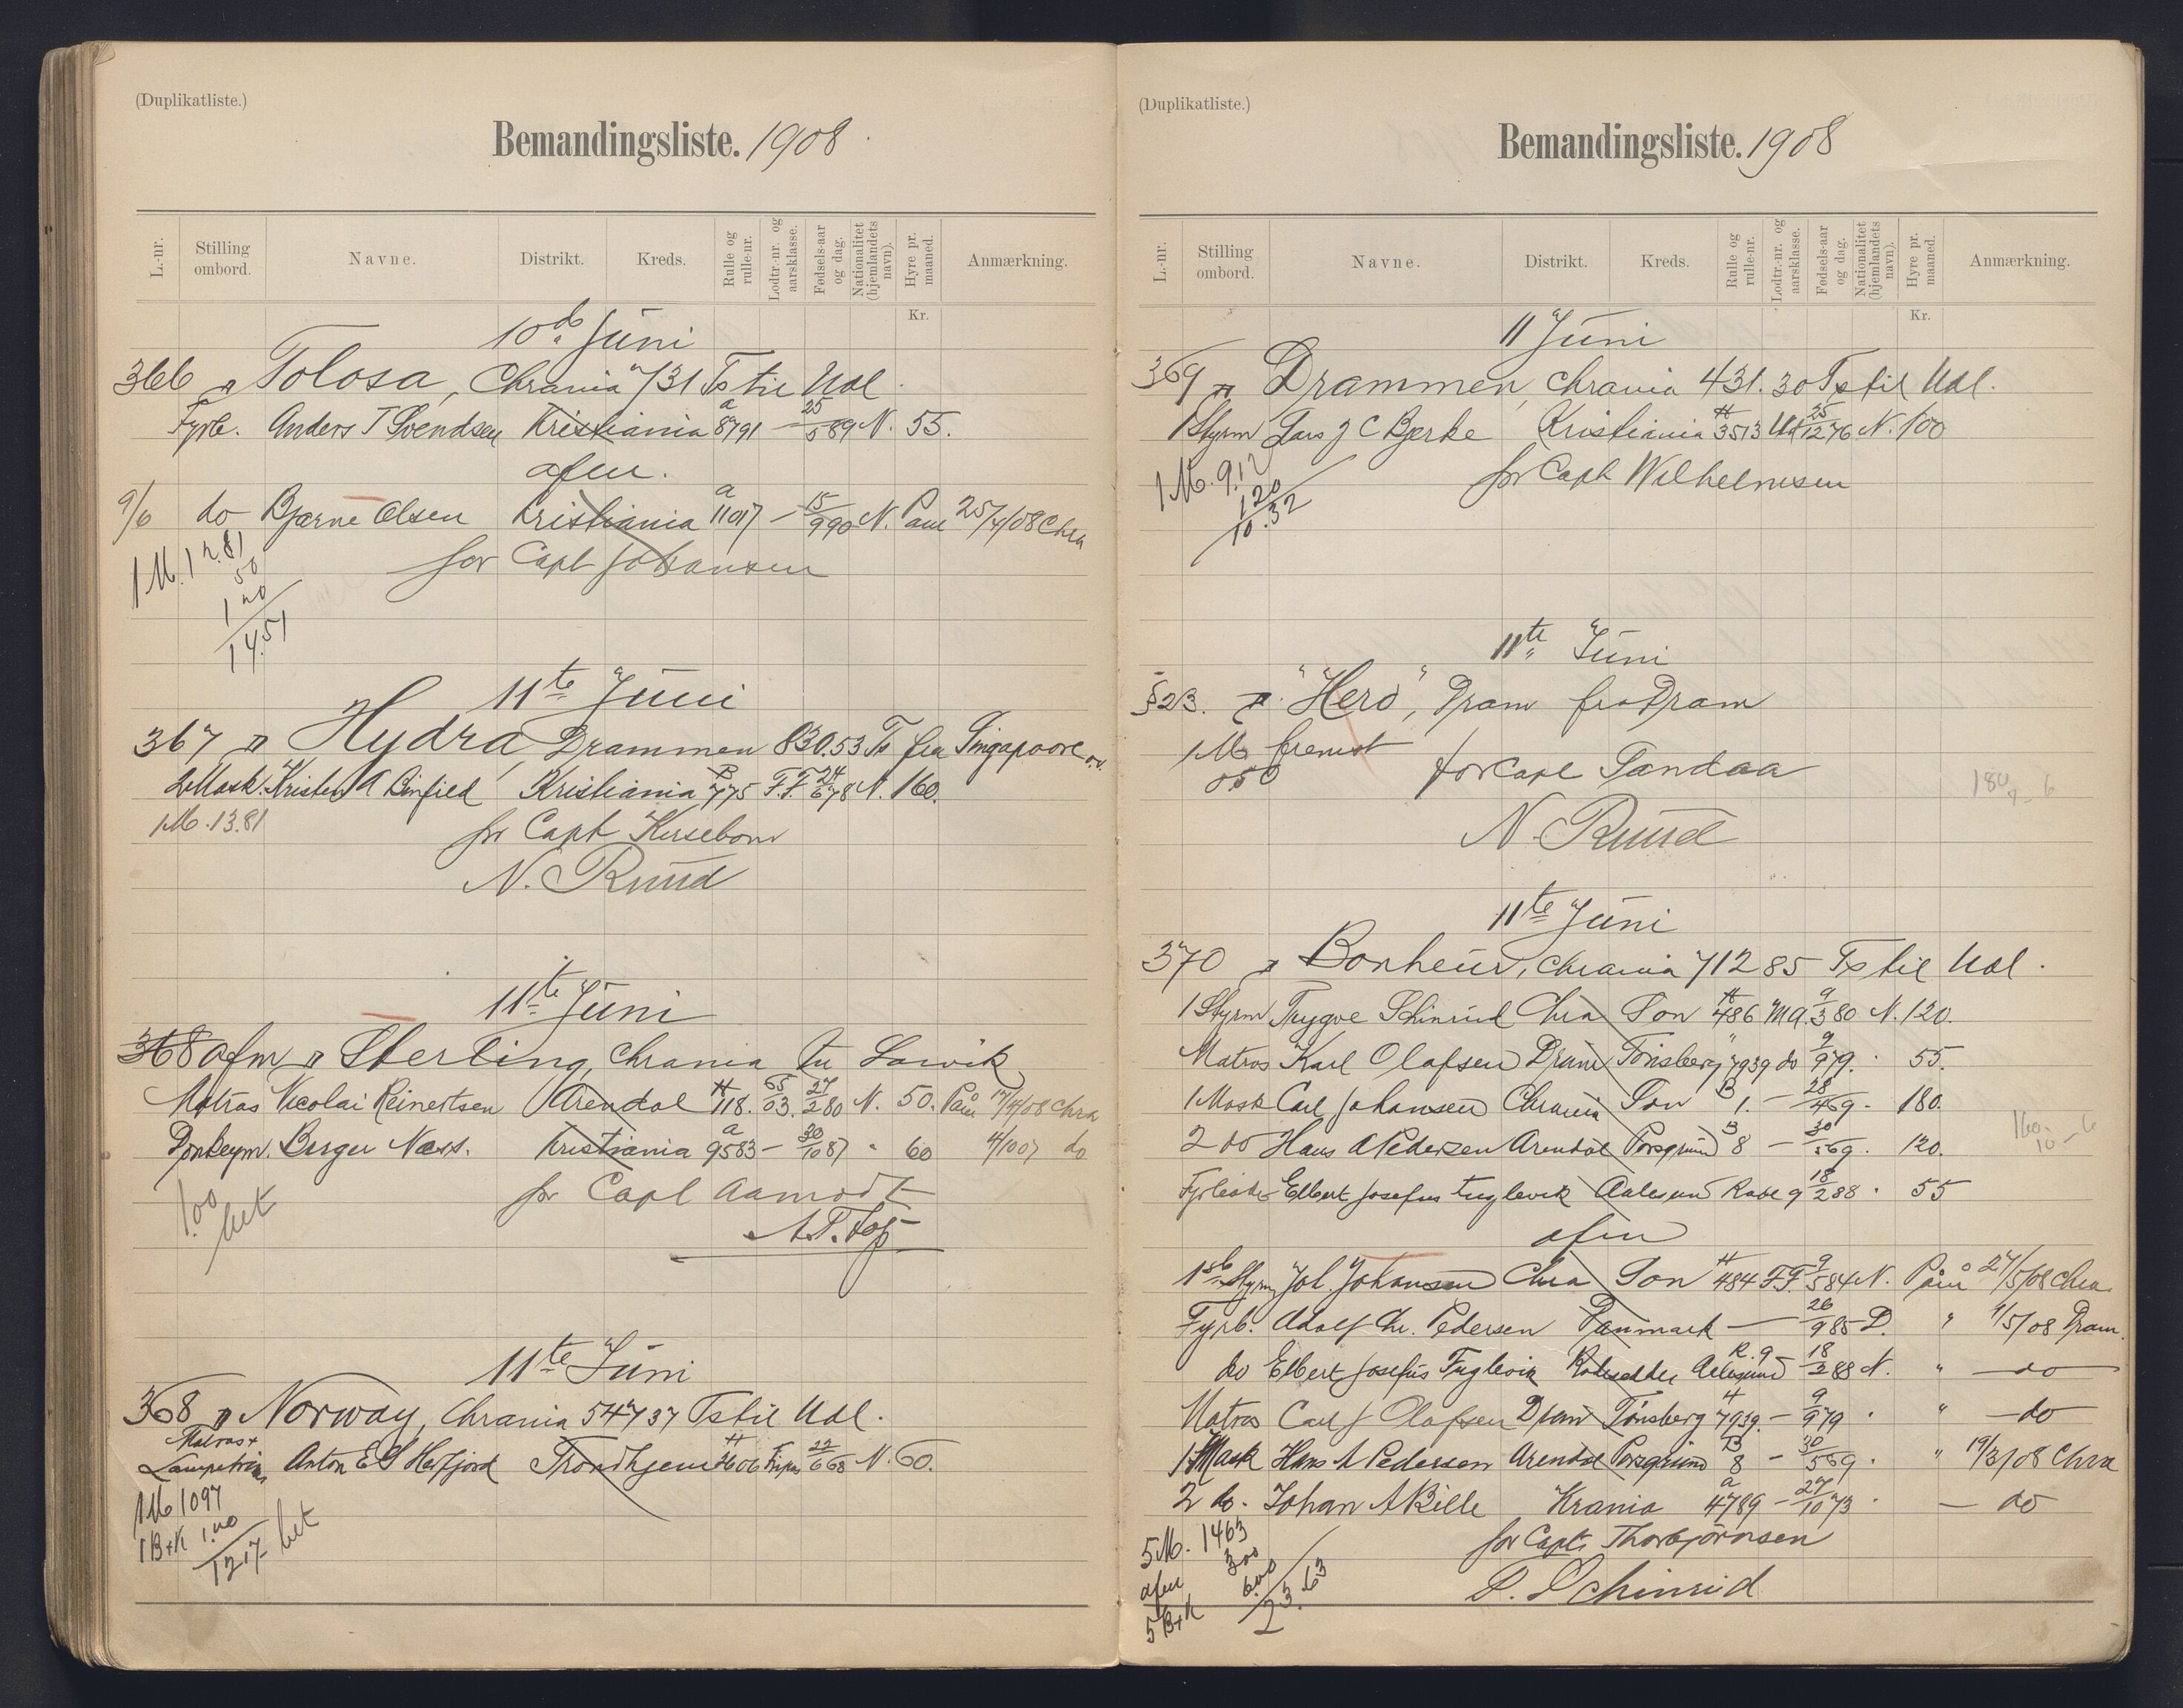 (Duplikatliste.)
Bemandingsliste. 1908
L.-nr.
Stilling ombord.
Navne.
Distrikt.
Kreds.
Rulle og rulle-nr.
Lodtr.-nr. og aarsklasse.
Fødsels-aar og dag.
Nationalitet (hjemlandets navn).
Hyre pr. maaned.
Anmærkning.
Kr.
10de Juni
366 Tolosa, Chrania 731 Ts til Udl.
Fyrb. Anders T Svendsen Kristiania a 8791 — 25/5 89 N. 55.
afm.
9/6 do Bjarne Olsen Kristiania a 11017 — 15/9 90 N. Paam 25/4/08 Chra
for Capt Johansen
1 M. 12.81
50
1 20
14.51
11te Juni
367 Hydra, Drammen 830.53 Ts fra Singapoore
2 Mask. Kristen A Kristiania B 775 F.F. 24/6 78 N. 160.
1 M. 13.81
for Capt Kersebom
N. Ruud
11te Juni
368 afm Sterling, Chrania til Larvik
Matros Nicolai Reinertsen Arendal H 118. 65/03. 27/2 80 N. 50. Paam 17/4/08 Chra
Donkeym. Berger Næss. Kristiania a 9583 — 30/10 87 " 60 4/10 07 do
for Capt Aamodt
1.00
bet
11te Juni
368 Norway, Chrania 547 37 Ts til Udl.
Matros +
Lampetrim Anton E S Hestfjord Trondhjem H 2606 22/6 68 N. 60.
1 M 1097
1 B+K 1.20
1217 bet
(Duplikatliste.)
Bemandingsliste. 1908
L.-nr.
Stilling ombord.
Navne.
Distrikt.
Kreds.
Rulle og rulle-nr.
Lodtr.-nr. og aarsklasse.
Fødsels-aar og dag.
Nationalitet (hjemlandets navn).
Hyre pr. maaned.
Anmærkning.
Kr.
11 Juni
369 Drammen, Chrania 431.30 Ts til Udl.
1 Styrm Lars J C Bjerke Kristiania H 3513 Ud 25/12 76 N. 100
for Capt Wilhelmsen
1 M. 9.12
1 20
10.32
11te Juni
§23. "Hero", Dram fra Dram
1 M fremst
0.50
for Capt Sandaa
N. Ruud
11te Juni
370 Bonheur, Chrania 712 85 Ts til Udl.
1 Styrm Trygve Schinrud Chra Son H 486 M a. 9/3 80 N. 120.
Matros Karl Olafsen Dram Tönsberg " 7939 do 9/9 79. " 55.
1 Mask Carl Johansen Chrania Son B 1. — 28/4 69. 180.
2 do Hans A Pedersen Arendal Porsgrund B 8 — 30/5 69. 120.
Fyrböder Elbert Josefus Fuglevik Aalesund Rode 9 18/2 88 " 55
afm
1ste Styrm Joh. Johansen Chra Son H 484 F.F. 9/5 84 N. Paam 27/5/08 Chra.
Fyrb. Adolf Chr. Pedersen Danmark — 26/9 85 D. " 4/5/08 Dram.
do Elbert Josefus Fuglevik Aalesund R. 9 — 18/2 88 N. " do
Matros Carl J Olafsen Dram Tönsberg H 7939. — 9/9 79 " " do
1 Mask Hans A Pedersen Arendal Porsgrund B 8 — 30/5 69. " 19/3/08 Chra
2 do. Johan A Bille Krania a 4789 — 27/10 73 " — do
for Capt. Thorbjörnsen
D. Schinrud
5 M. 1463
afm 300
5 B+K 6.00
23.63